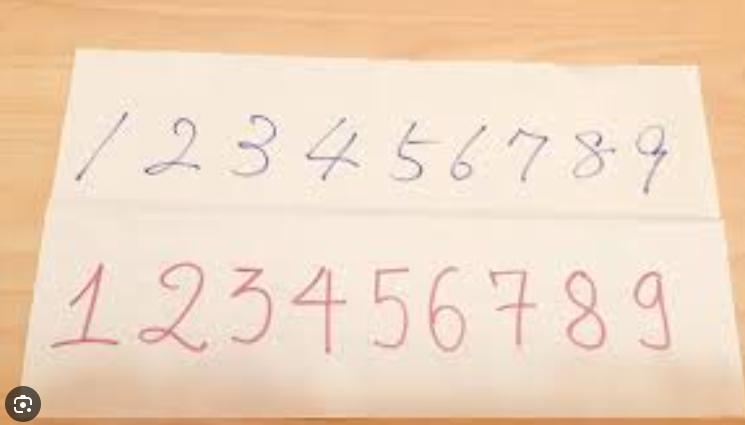 1 2 3 4 5 6 7 8 9
1 2 3 4 5 6 7 8 9